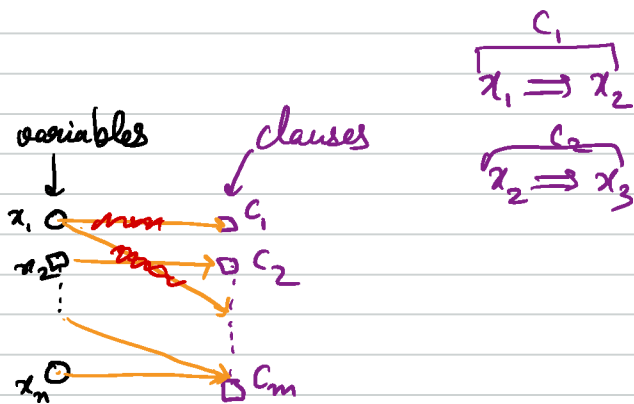 C₁
x₁ ⟹ x₂
variables clauses
C₂
x₂ ⟹ x₃
x₁ C₁
x₂ C₂
xₙ Cₘ